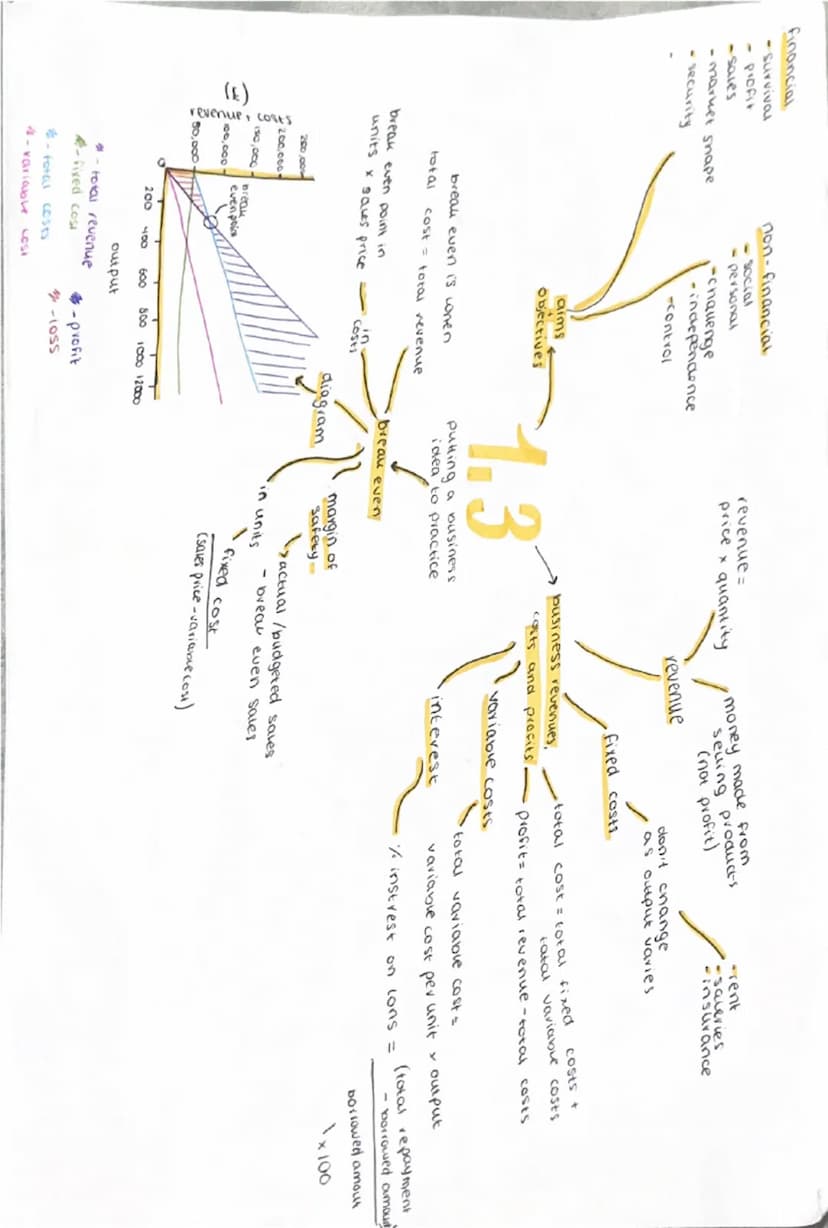 financial
- survival
- profit
- sales
- market shape
- security
-
non-financial
- social
- personal
- challenge
- independence
- control
aims
+
objectives
1.3
putting a business
idea to practice
business revenues,
costs and profits
revenue
revenue =
price x quantity
money made from
selling products
(not profit)
fixed costs
don't change
as output varies
- rent
- salaries
- insurance
total cost = total fixed costs +
total variable costs
profit = total revenue - total costs
variable costs
total variable costs =
variable cost per unit x output
interest
% instrest on lons = (total repayment
- borrowed amout
borrowed amout
x 100
break even
break even is when
total cost = total revenue
in
costs
break even point in
units x sales price
diagram
margin of
safety -
actual / budgeted sales
- break even sales
in units
fixed cost
(sales price - variable cost)
(£)
revenue, costs
200,000
150,000
100,000
50,000
0
break
even point
200
400
600
800
1000
12000
output
* - total revenue
* - fixed cost
* - total costs
* - variable cost
* - profit
* - loss